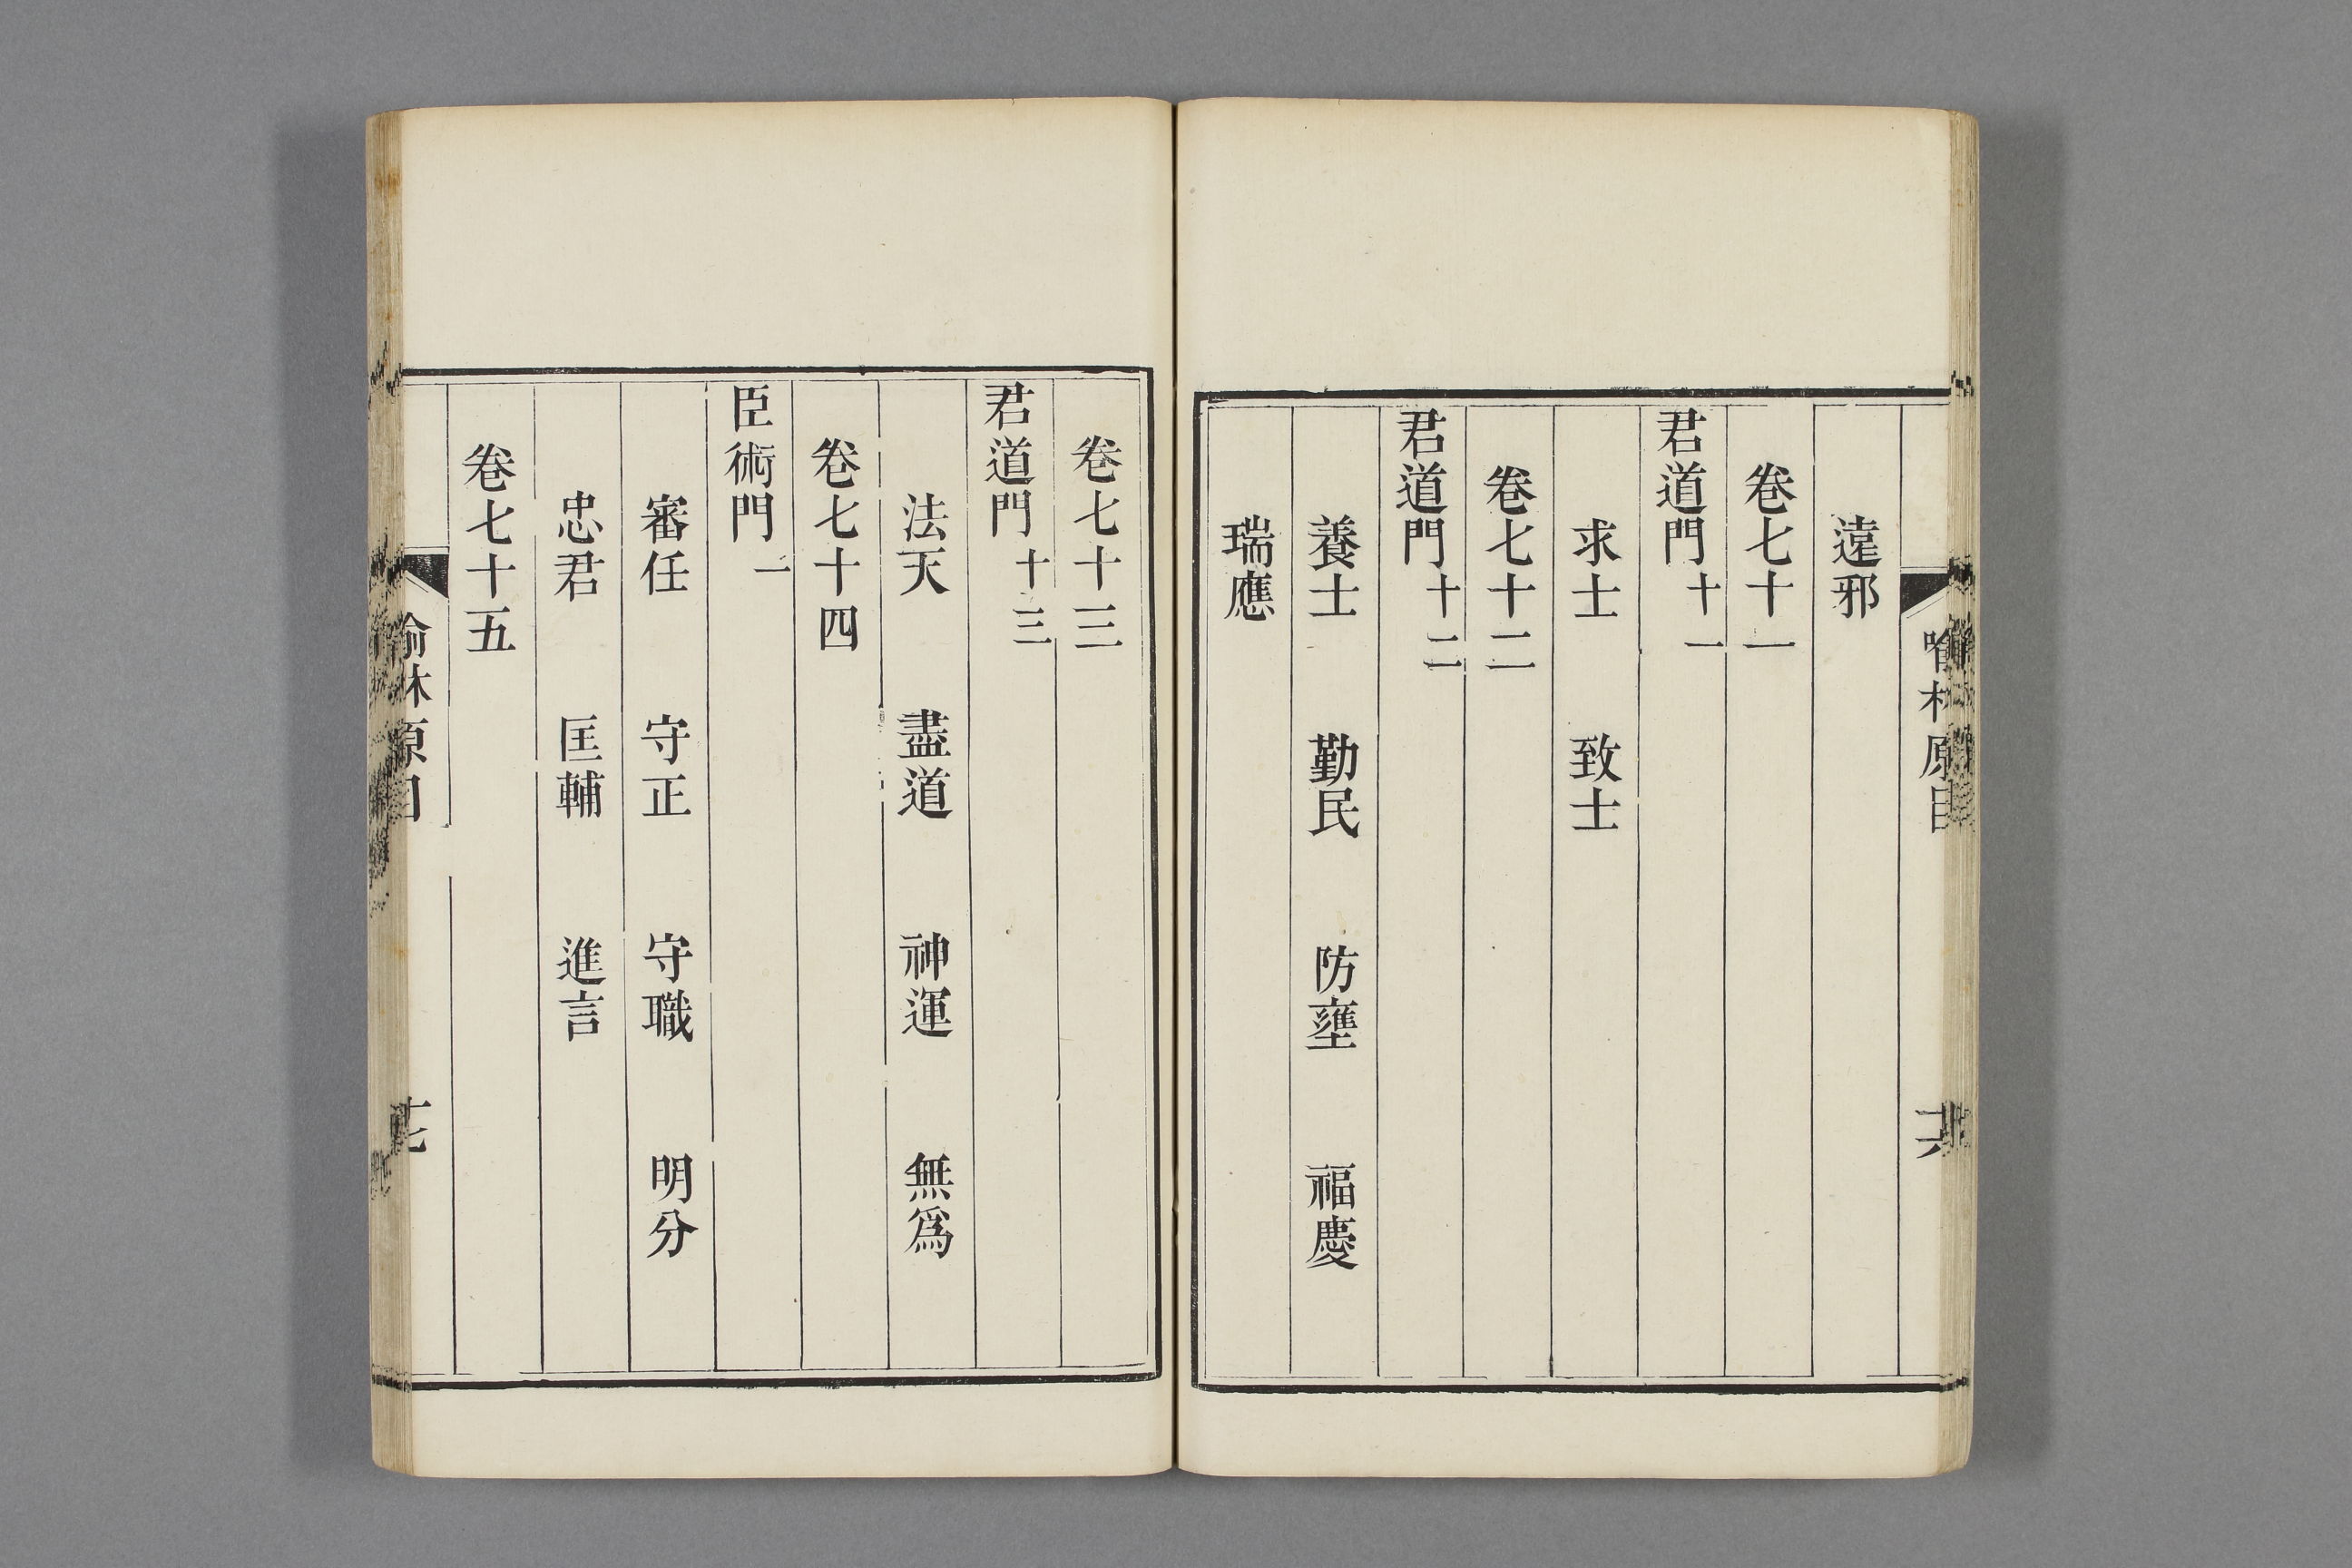 喻林原目
十六
遠邪
卷七十一
君道門十一
求士　致士
卷七十二
君道門十二
養士　勤民　防壅　福慶
瑞應
卷七十三
君道門十三
法天　盡道　神運　無爲
卷七十四
臣術門一
審任　守正　守職　明分
忠君　匡輔　進言
卷七十五
喻林原目
十七